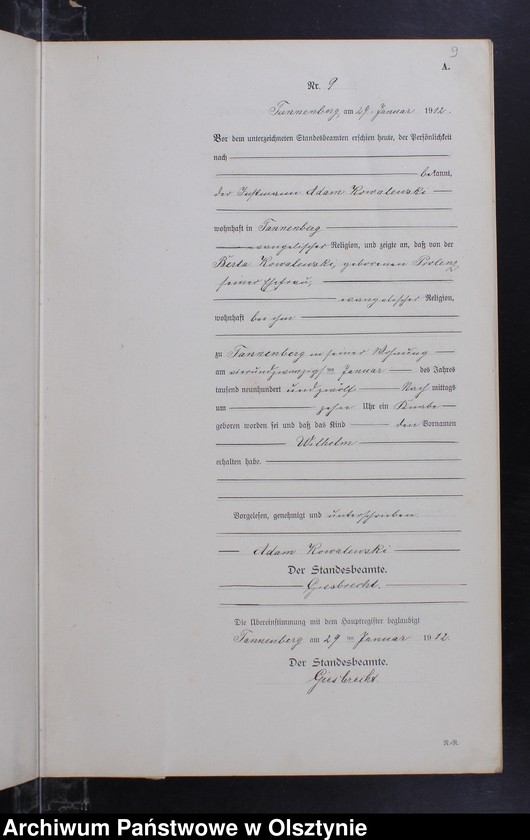 9
A.
Nr. 9
Tannenberg, am 29. Januar 1912.
Vor dem unterzeichneten Standesbeamten erschien heute, der Persönlichkeit
nach
bekannt,
der Instmann Adam Kowalewski
wohnhaft in Tannenberg
evangelischer Religion, und zeigte an, daß von der
Berta Kowalewski, geborenen
seiner Ehefrau,
evangelischer Religion,
wohnhaft bei ihm
zu Tannenberg in seiner Wohnung
am vierundzwanzigsten Januar des Jahres
tausend neunhundert undzwölf Nachmittags
um zehn Uhr ein Knabe
geboren worden sei und daß das Kind den Vornamen
Wilhelm
erhalten habe.
Vorgelesen, genehmigt und unterschrieben
Adam Kowalewski
Der Standesbeamte.
Giesbrecht.
Die Übereinstimmung mit dem Hauptregister beglaubigt
Tannenberg am 29ten Januar 1912.
Der Standesbeamte.
Giesbrecht
Archiwum Państwowe w Olsztynie